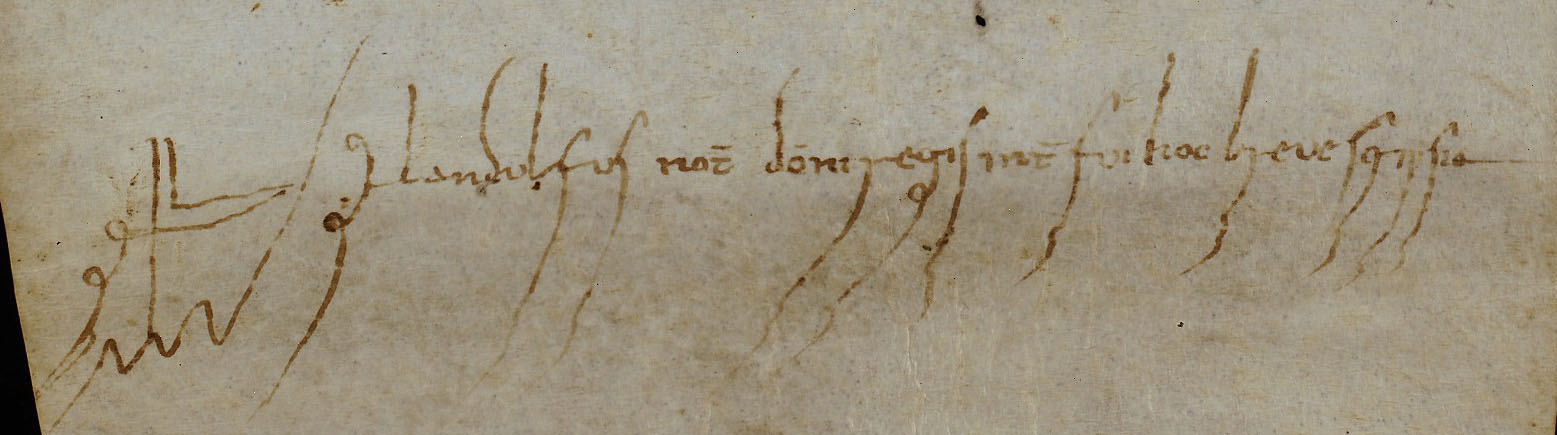 landolfus not̄ dōni regis int̄ fui hoc breve scripsi